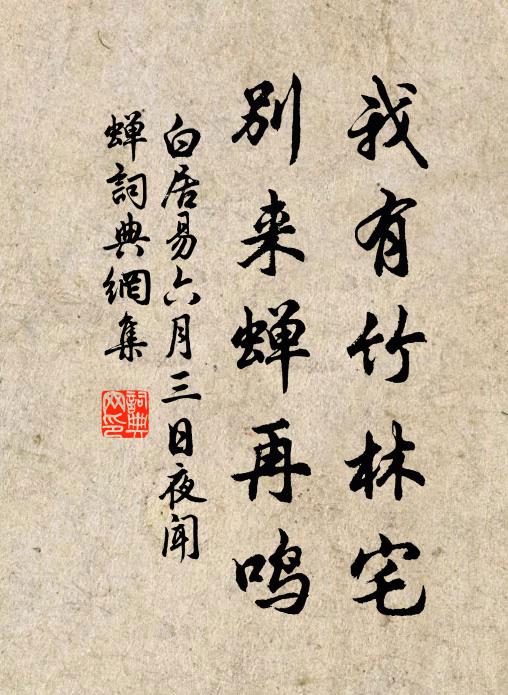 我有竹林宅
别来蝉再鸣
白居易六月三日夜闻
蝉詞典網集
詞典
网印